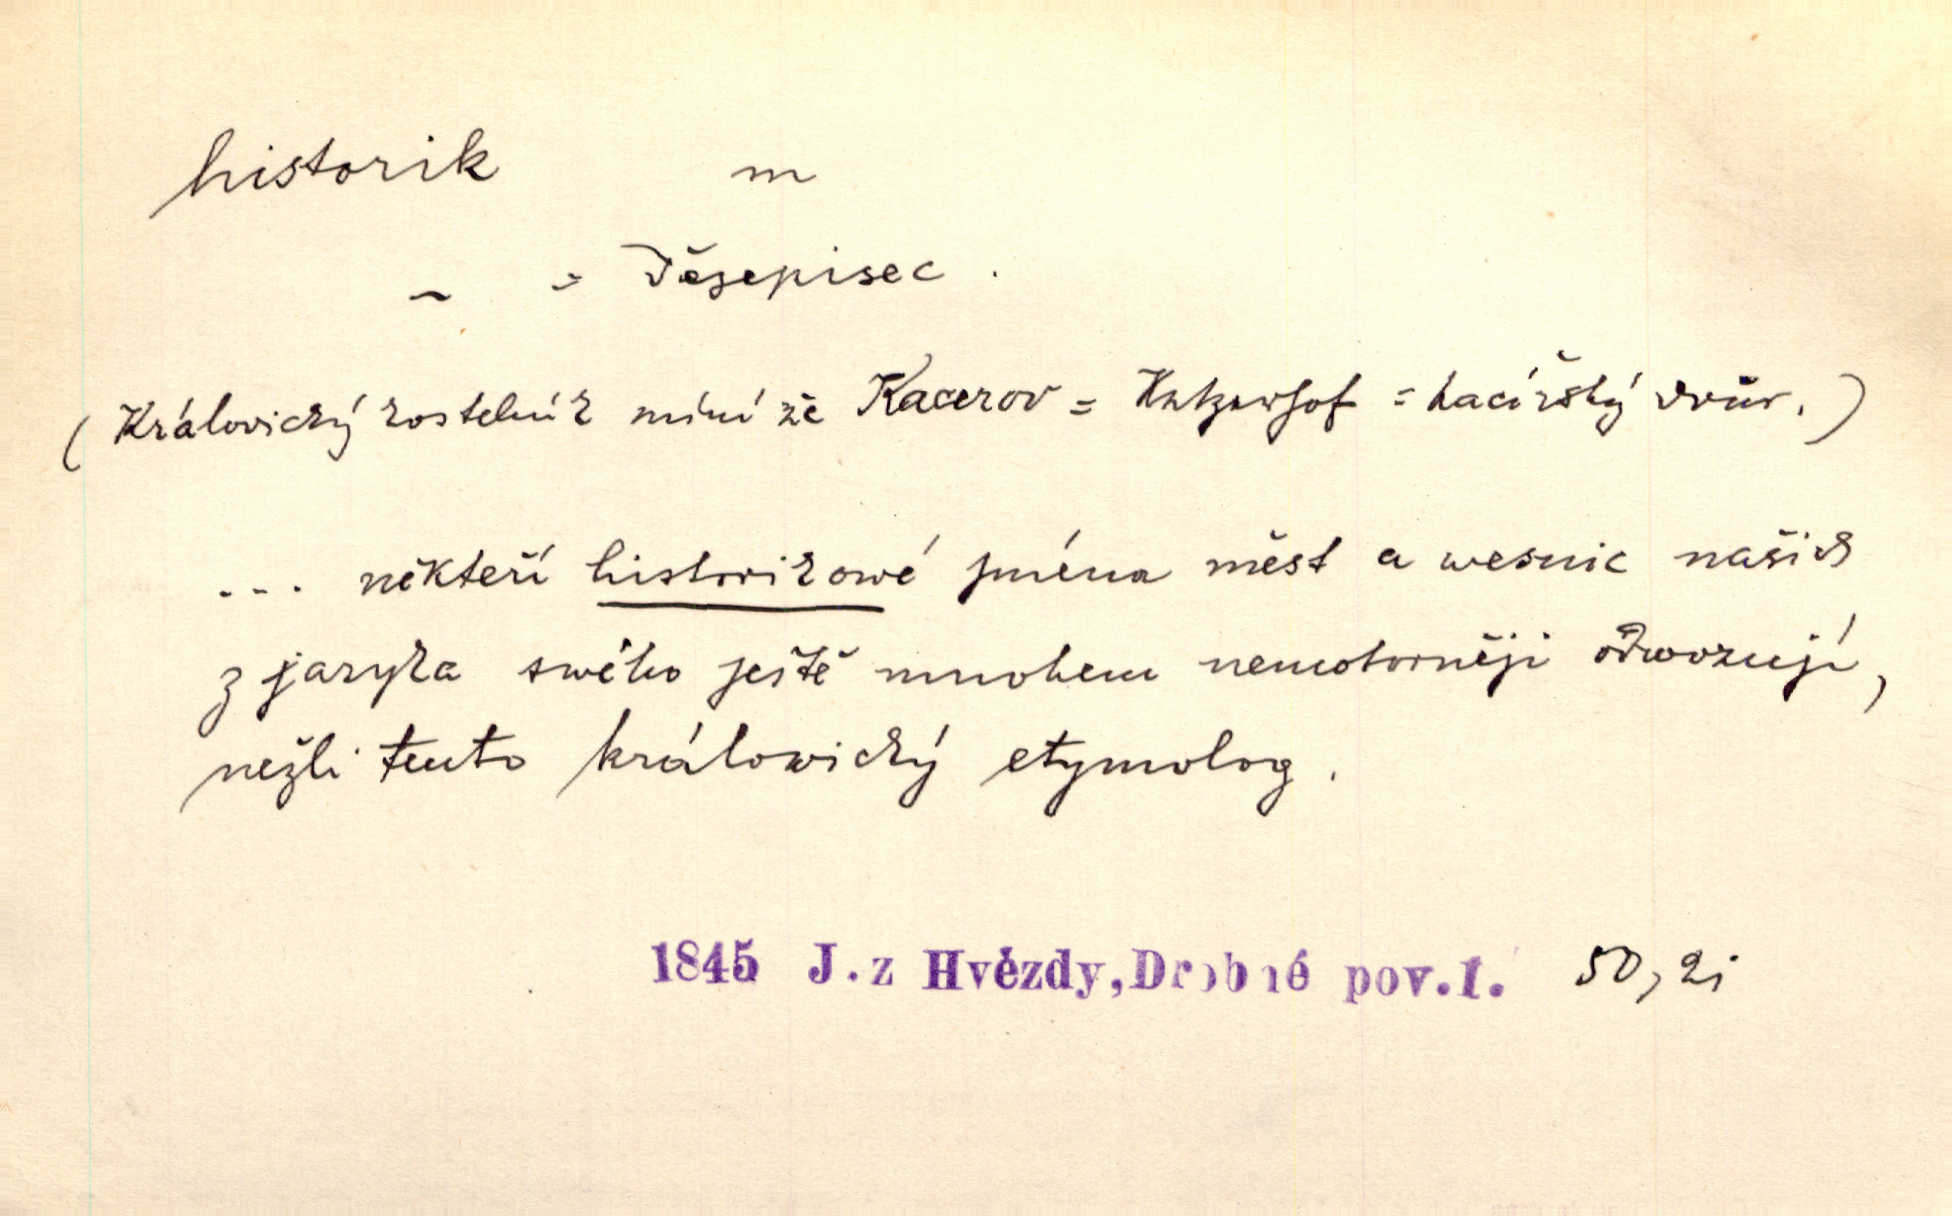 historik m
– = Dějepisec .
( Královický kostelník míní že Kacerov = Katzerhof = kacířský dvůr. )
... někteří historikowé jména měst a wesnic našich
z jazyka swého ještě mnohem nemotorněji odwozují,
nežli tento králowický etymolog .
1845 J.z Hvězdy,Drobné pov.1. 50, 2i